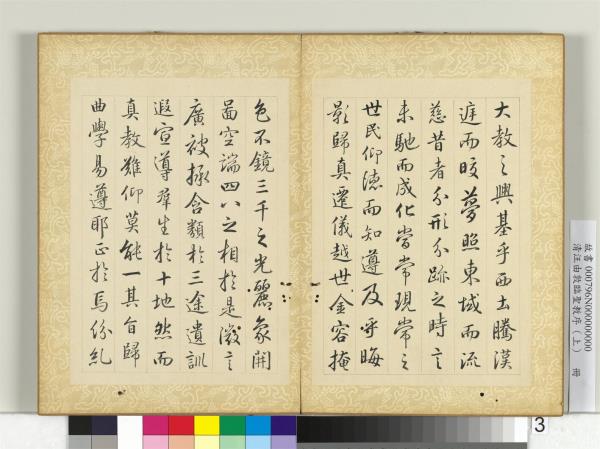 大教之興基乎西土騰漢
庭而皎夢照東域而流
慈昔者分形分跡之時言
未馳而成化當常現常之
世民仰德而知遵及乎晦
影歸真遷儀越世金容掩
色不鏡三千之光麗象開
圖空端四八之相於是微言
廣被拯含類於三途遺訓
遐宣導群生於十地然而
真教難仰莫能一其旨歸
曲學易遵耶正於焉紛糺
故書 000796N000000000
清汪由敦臨聖教序(上) 冊
3